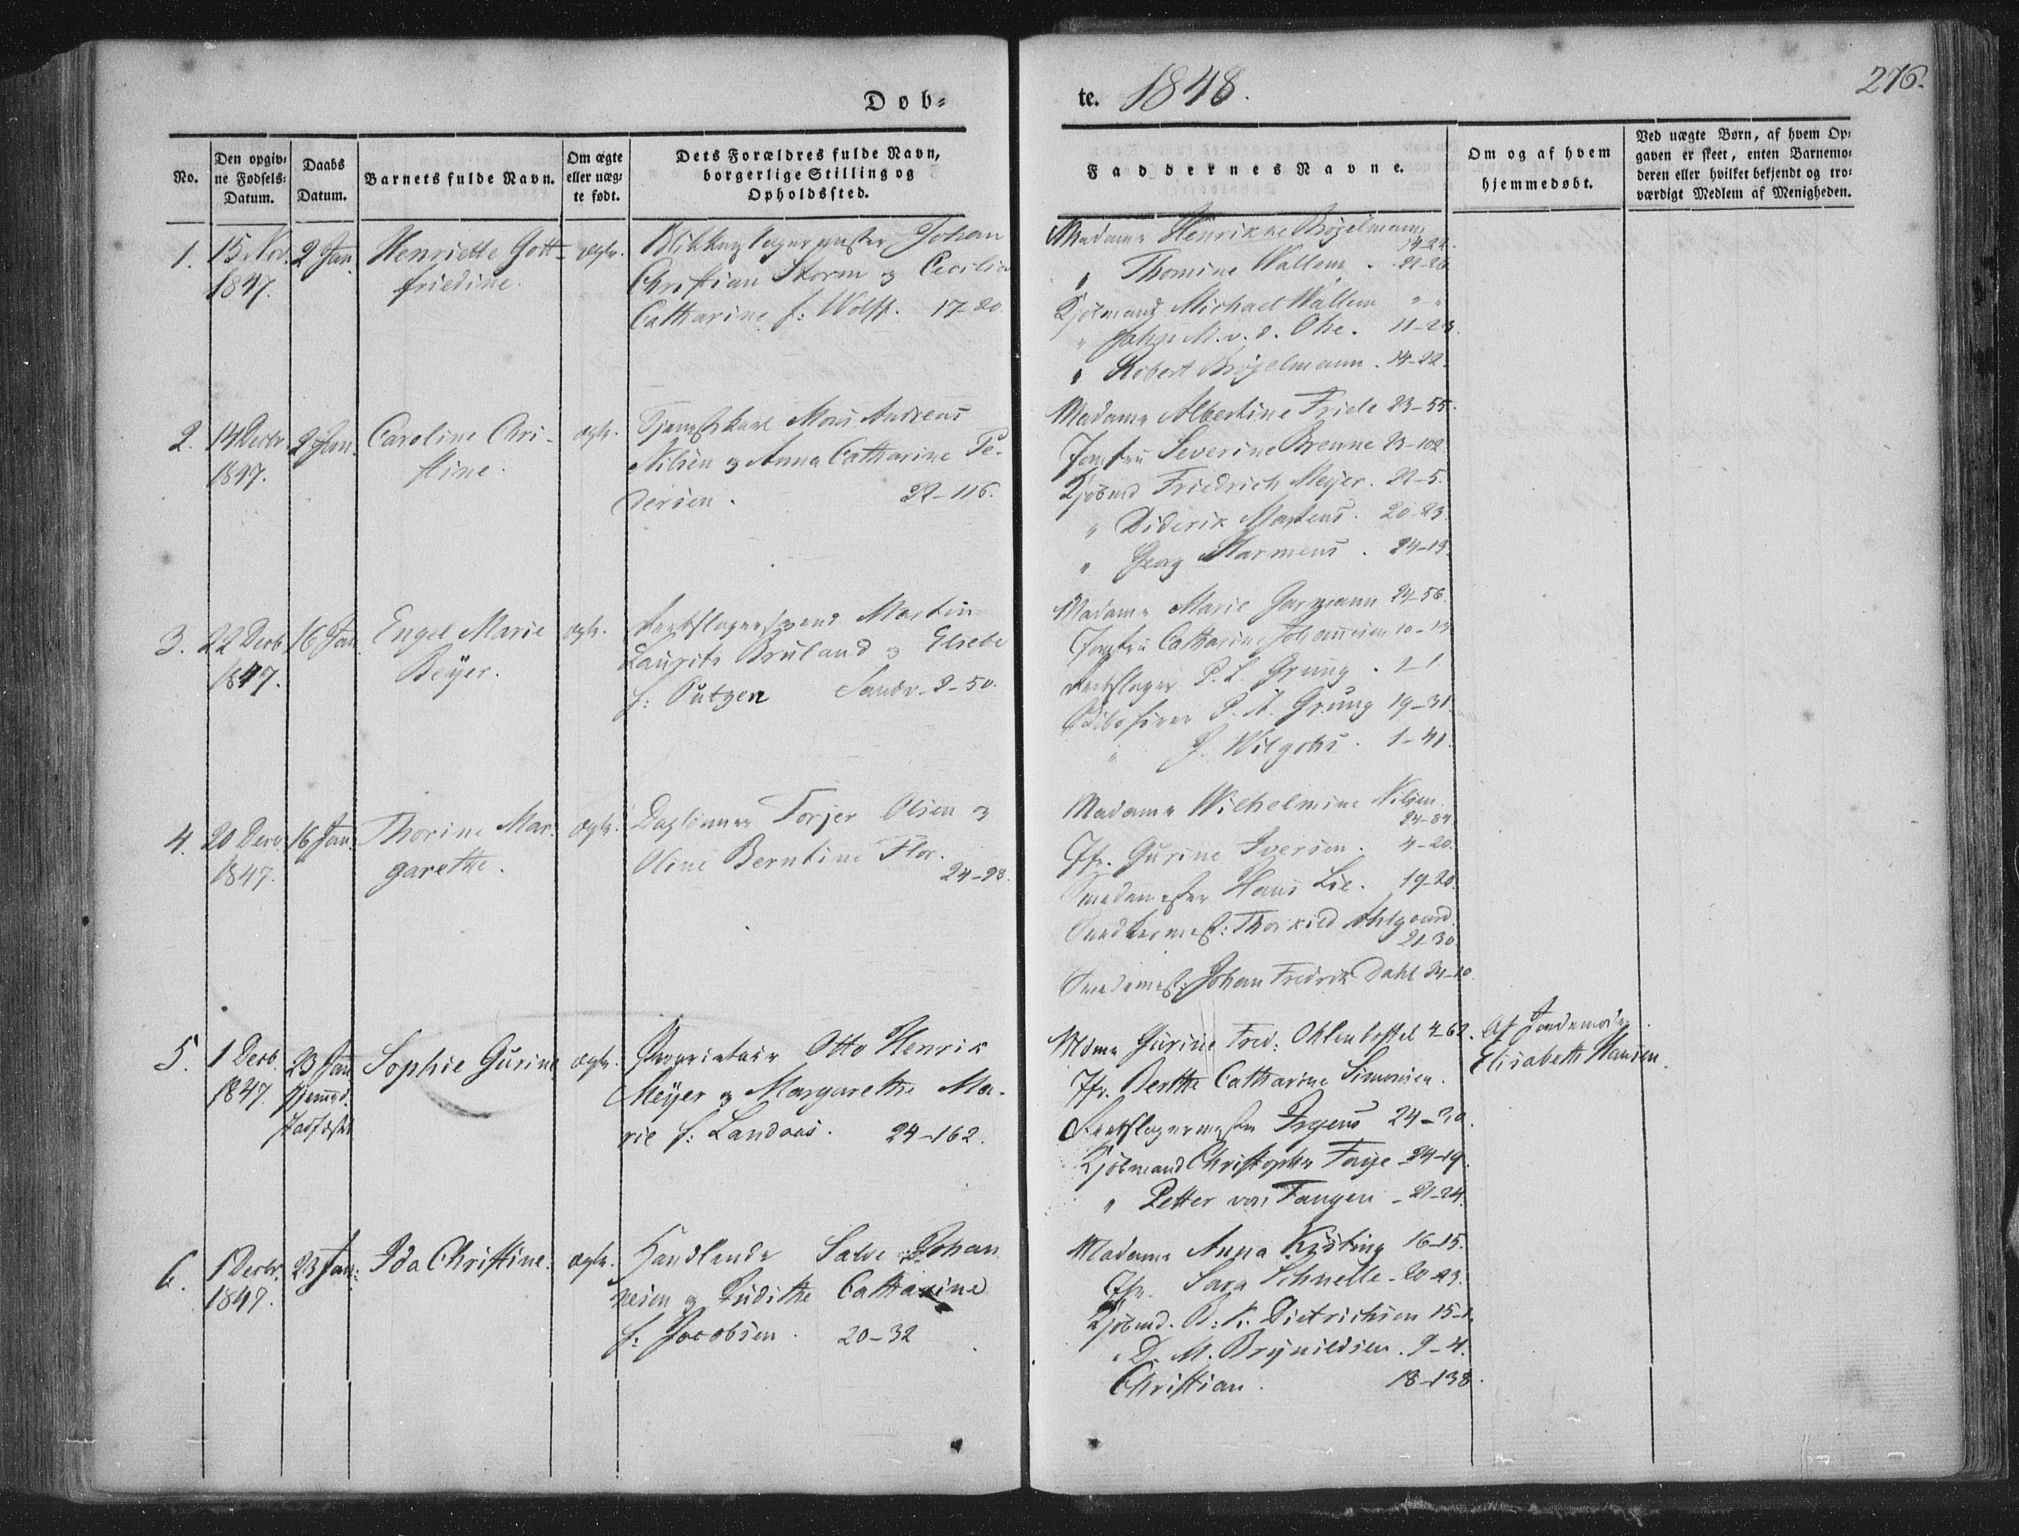 Døb=
te. 1848.
276.
No.
Den opgiv=
ne Fødsels=
Datum.
Daabs
Datum.
Barnets fulde Navn.
Om ægte
eller uæg=
te født.
Dets Forældres fulde Navn,
borgerlige Stilling og
Opholdssted.
Faddernes Navne.
Om og af hvem
hjemmedøbt.
Ved uægte Børn, af hvem Op=
gaven er skeet, enten Barnemo=
deren eller hvilket bekjendt og tro=
værdigt Medlem af Menigheden.
1.
15 Nov.
1847.
2 Jan.
Henriette Gott-
friedine.
ægte.
Blikkenslagermester Johan
Christian Storm og Cecilie
Catharine f: Wolff. 17-20.
Madame Henrikke Bøgelmann
14-22.
" Thomine Wallem . 21-26
Kjøbmand Michael Wallem " "
" Johan M. v. d. Ohe. 11-23.
" Robert Bøgelmann. 14-22.
2.
14 Decbr
1847.
2 Jan.
Caroline Chri-
stine.
ægte.
Tjenestkarl Mons Andreas
Nilsen og Anna Catharine Pe-
dersen. 22-116.
Madame Albertine Friele 23-55.
Jomfru Severine Brenne 23-102
Kjøbmd Friedrich Meyer. 22-5.
" Diderik Martens. 20-23.
" Georg Harmens . 24-13.
3.
22 Decb
1847.
16 Jan
Engel Marie
Beyer.
ægte.
Martin
Laurits Bruland og Elsebe
f: Pütger Sandv. 2-50.
Madame Marie Garmann 24-56.
Jomfru Catharine Johannesen 10-13
P. L. Grung . 1-1
P. A. Grung 19-31.
" 1-41.
4.
20 Decb.
1847.
16 Jan
Thorine Mar-
garethe.
ægte.
Daglønner Torjer Olsen og
Oline Berntine Flor.
24-98.
Madame Wilhelmine Nilsen
24-84.
Jfr. Gurine Iversen. 4-20.
Smedemester Hans Lie. 19-20.
Snedkermest: Thorkild
21-30.
Smedemest: Johan Fredrik Dahl 24-10
5.
1 Decb.
1847.
23 Jan
Sophie Gurine
ægte.
Proprietair Otto Henrik
Meyer og Margarethe Ma-
rie f: Landaas. 24-162.
Mdme Gurine Fred: Ohlenbostel 4-62.
Jfr. Berthe Catharine Simonsen.
Irgens 24-30.
Kjøbmand Christopher Faye - 24-19.
" Petter von Tangen - 21-24.
Af Jordemoder
Elisabeth Hansen.
6.
1 Decbr.
1847.
23 Jan:
Ida Christine.
ægte.
Handlende Salve Johan
nesen og Judithe Catharine
f: Jacobsen . 20-32
Madame Anna Kisting 16-15.
Jfr. Sara Schnelle - 20-23.
Kjøbmd. B. K. Dietrichsen 15-1.
" D. M. Brynildsen. 9-4.
Christian . 18-138.